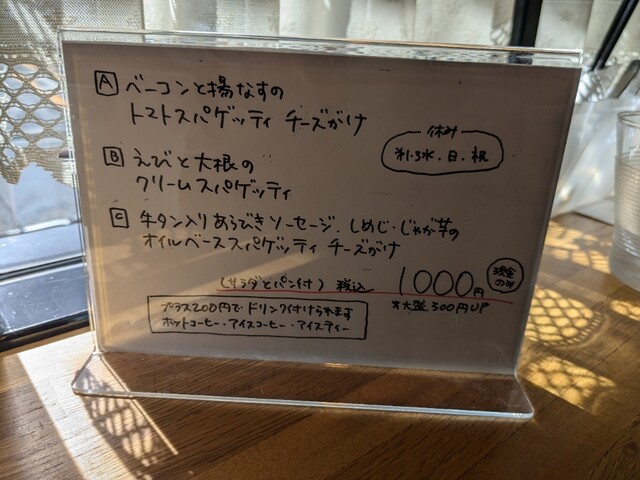 A ベーコンと揚なすの
トマトスパゲッティ チーズがけ
休み
第1.3水.日.祝
B えびと大根の
クリームスパゲッティ
C 牛タン入りあらびきソーセージ.しめじ.じゃが芋の
オイルベーススパゲッティ チーズがけ
(サラダとパン付) 税込 1000円
現金
のみ
※大盛300円UP
プラス200円でドリンク付けられます
ホットコーヒー・アイスコーヒー・アイスティー